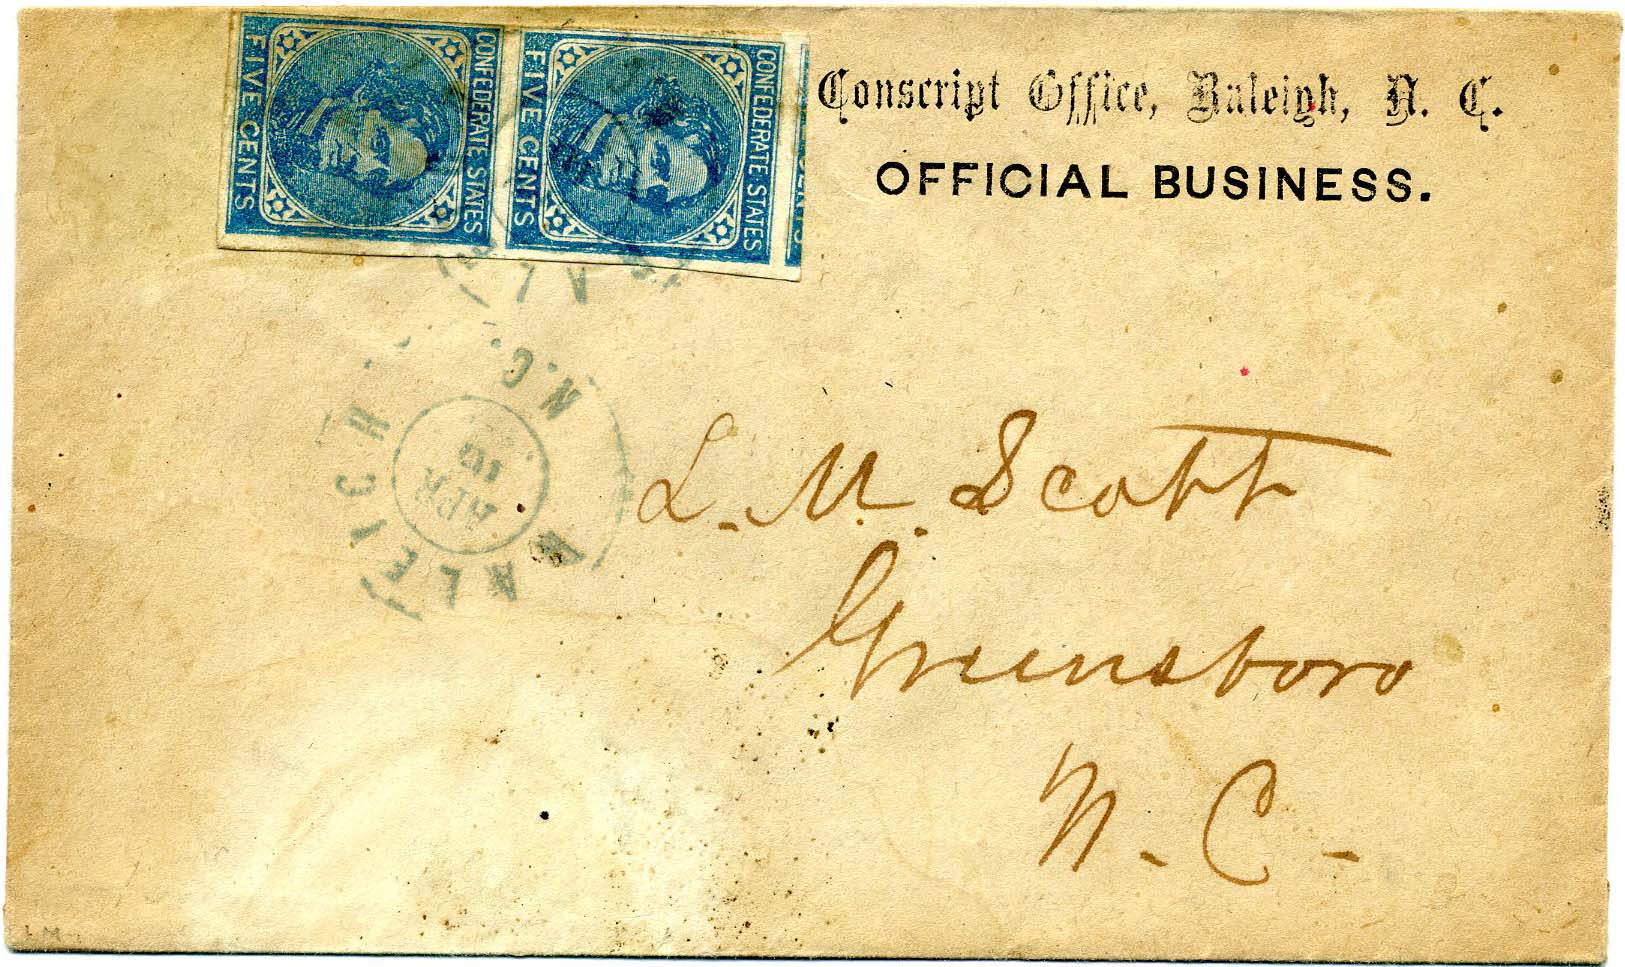 CONFEDERATE STATES
FIVE CENTS
CONFEDERATE STATES
FIVE CENTS
Conscript Office, Raleigh, N. C.
OFFICIAL BUSINESS.
RALEIGH N.C.
APR
10
L. M. Scott
Greensboro
N. C.
LM